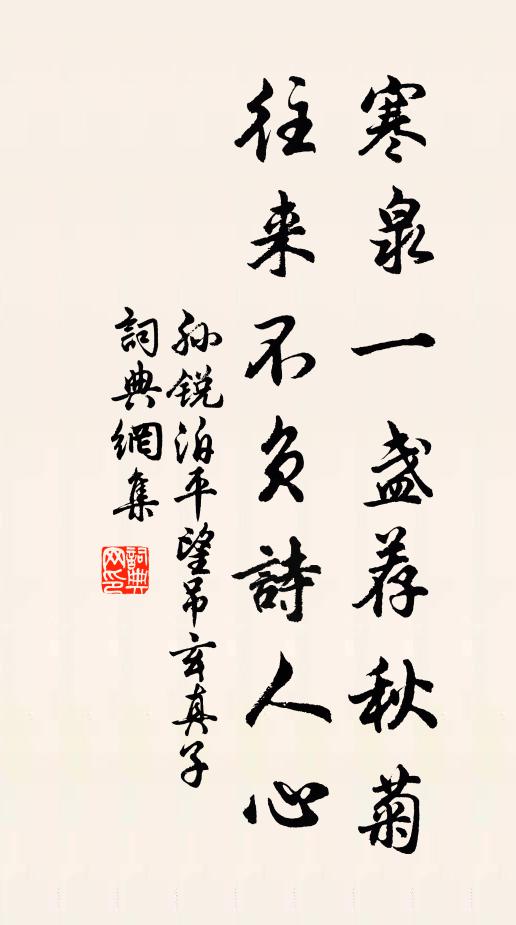 寒泉一盏荐秋菊
往来不负詩人心
孙锐泊平望吊玄真子
詞典網集
詞典网印